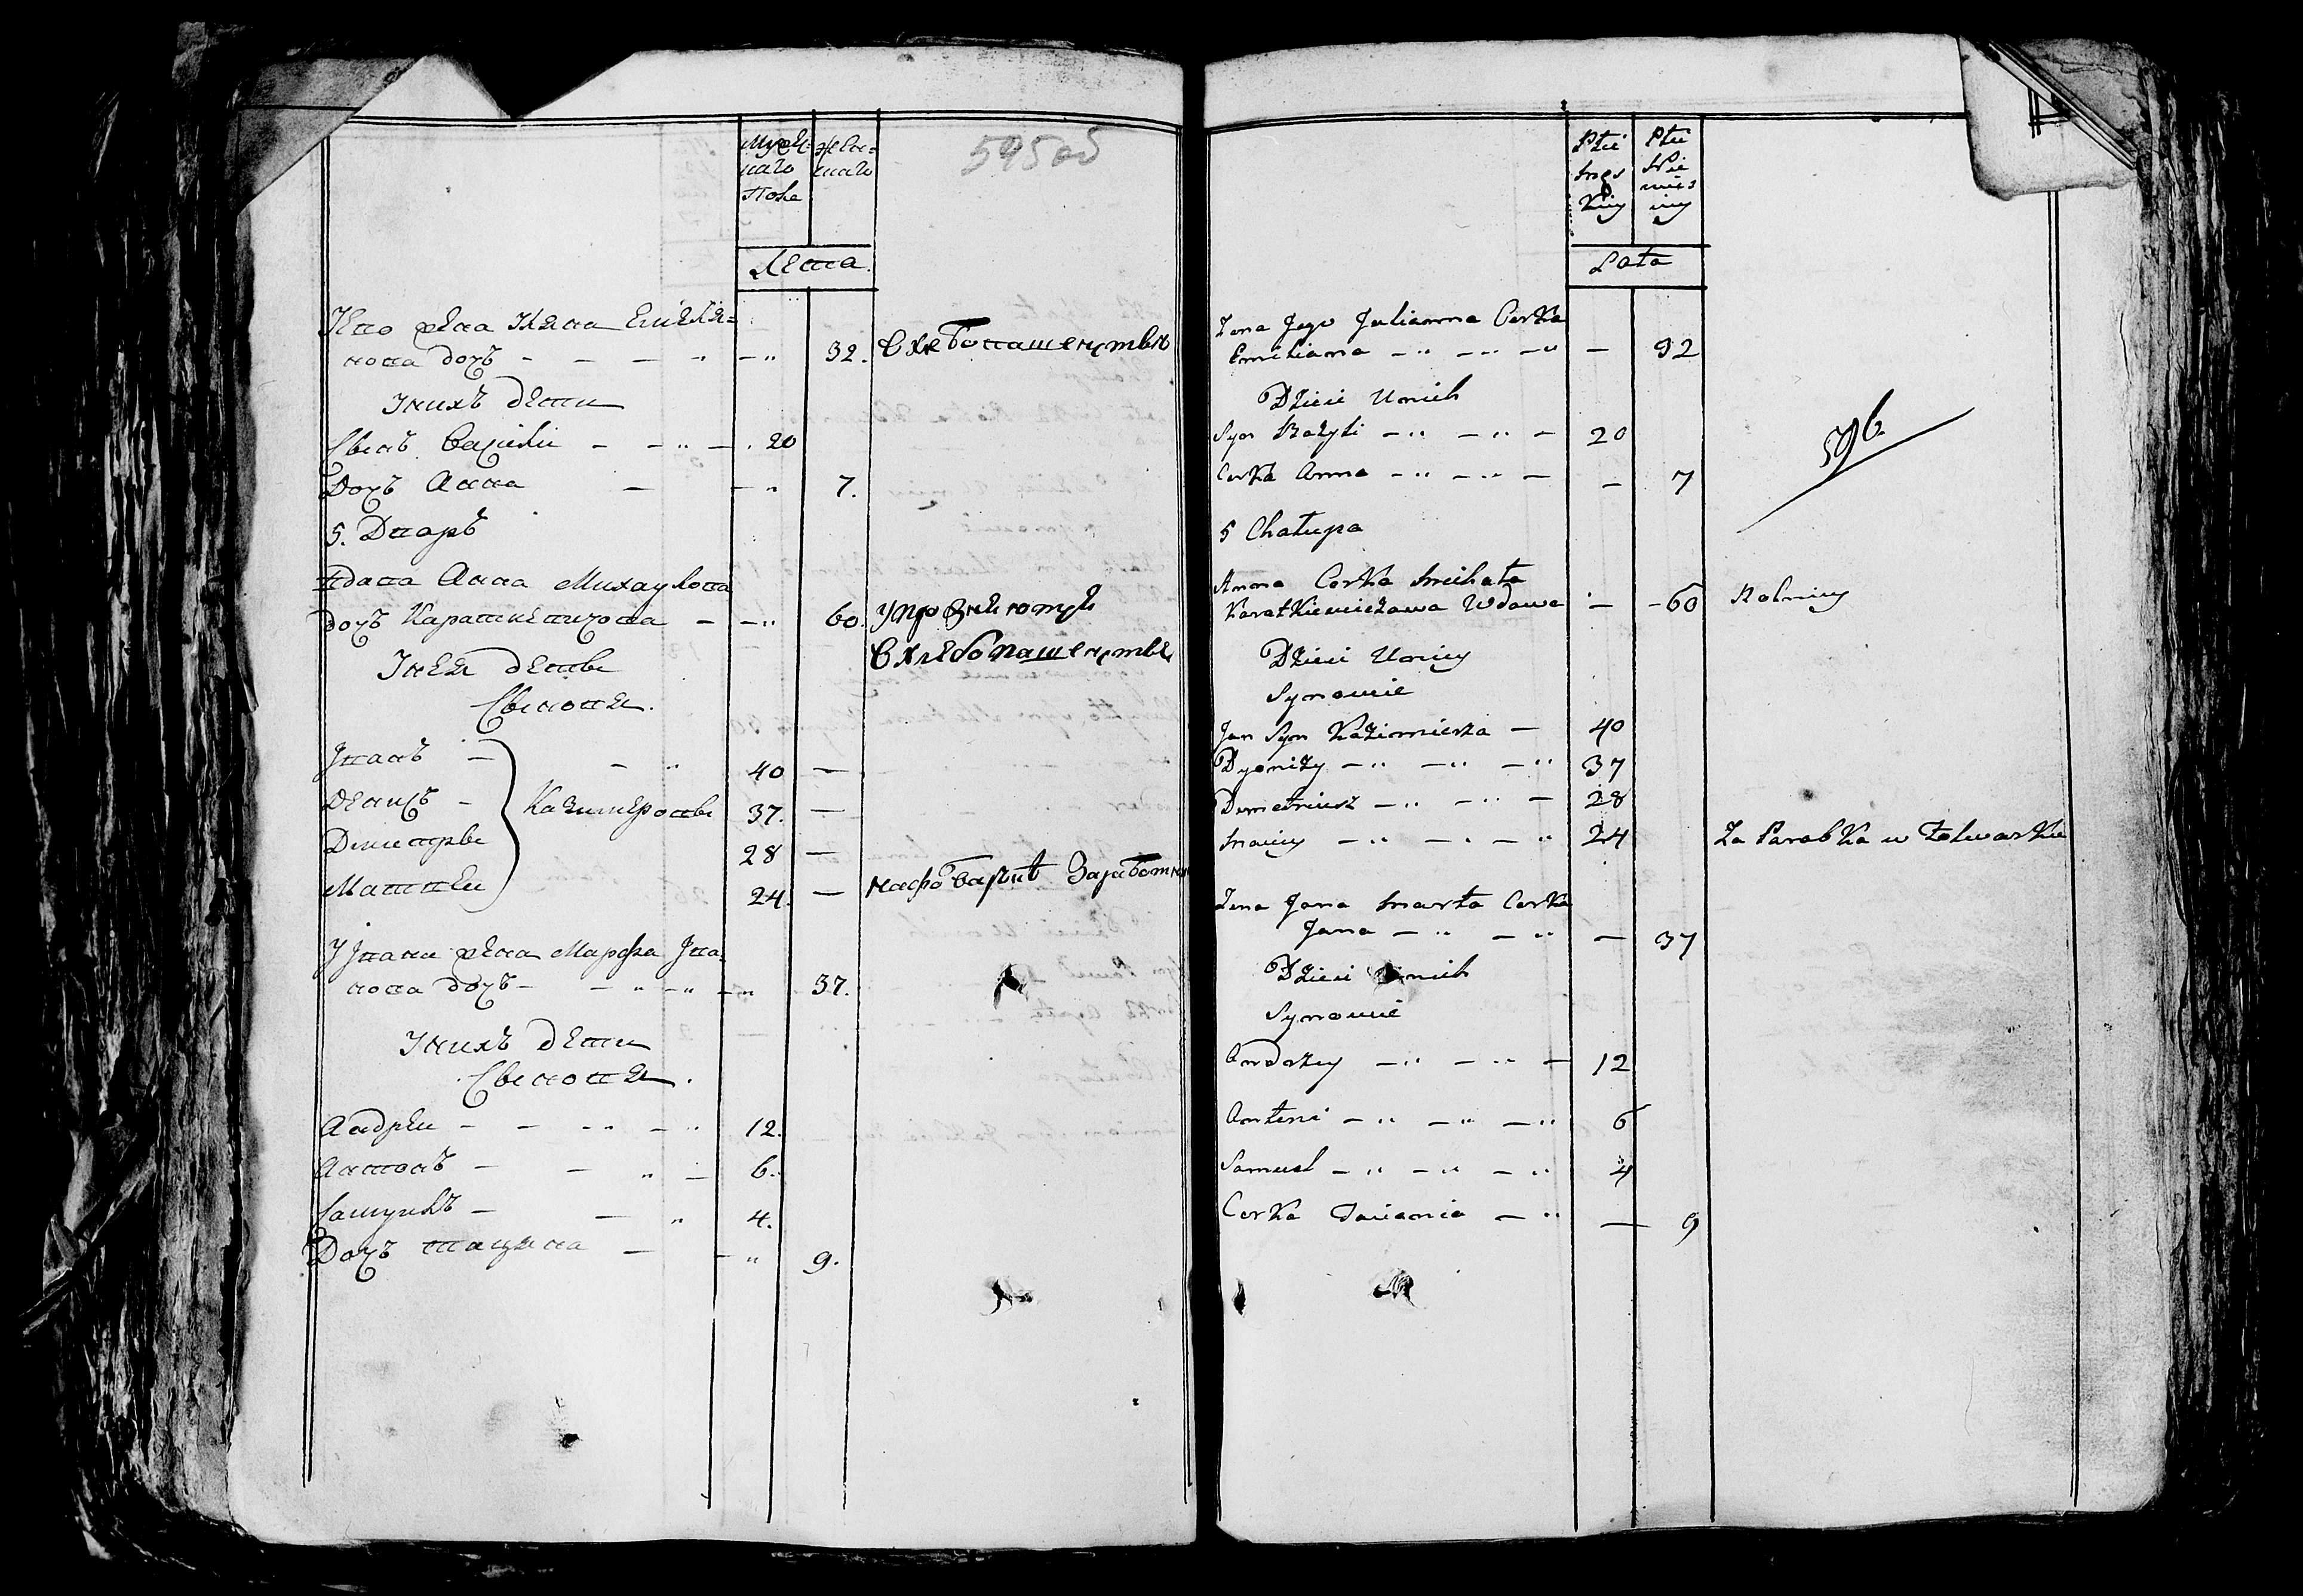 595 об
Мужес-
каго
Пола
женс-
каго
Лета.
Его жена Уляна Емелья=
нова дочь - - - " - " 32. В хлебопашенстве
У нихъ дети
Сынъ Василий - - " - . 20
Дочь Анна - - " 7.
5. Дворъ
Вдова Анна Михаулова
дочь Караткевичова - - " 60. упражнеютце
В хлебопашенстве
У нея дети
Сыновья.
Иванъ - - " 40 -
Денисъ - Казимеровы 37. -
Дмитры 28 -
Матвей 24. - на фольварке
У Ивана жена Марфа Ива-
нова дочь - - " - " - " 37.
У нихъ дети
Сыновья.
Андрей - - - " - " 12.
Антонъ - - " - 6.
Самуилъ - - " 4.
Дочь Тацяна - - " 9.
Płci
męs
kiey
Płci
Nie
wies
ciey
Lata
Zona Jego Julianna Corka
Emiliana - " - " - " - 32
Dzieci Unich
Syn Bazyli - " - " - 20
Corka Anna - " - " - - 7
596
5 Chałupa
Anna Corka Michała
Karatkiewiczawa Wdowa - - 60 Rolnicy
Dzieci Uniey
Synowie
Jan Syn Kazimierza - 40
Dyonizy - " - " - " 37
Demetriusz - " - " - 28
Maciey - " - " - " 24 Za Parobka w Folwarku
Zona Jana Marta Corka
Jana - " - " - 37
Dzieci Unich
Synowie
Andrzey - " - " - 12
Antoni - " - " - " 6
Samuel - " - " - " 4
Corka Taciania - " - 9